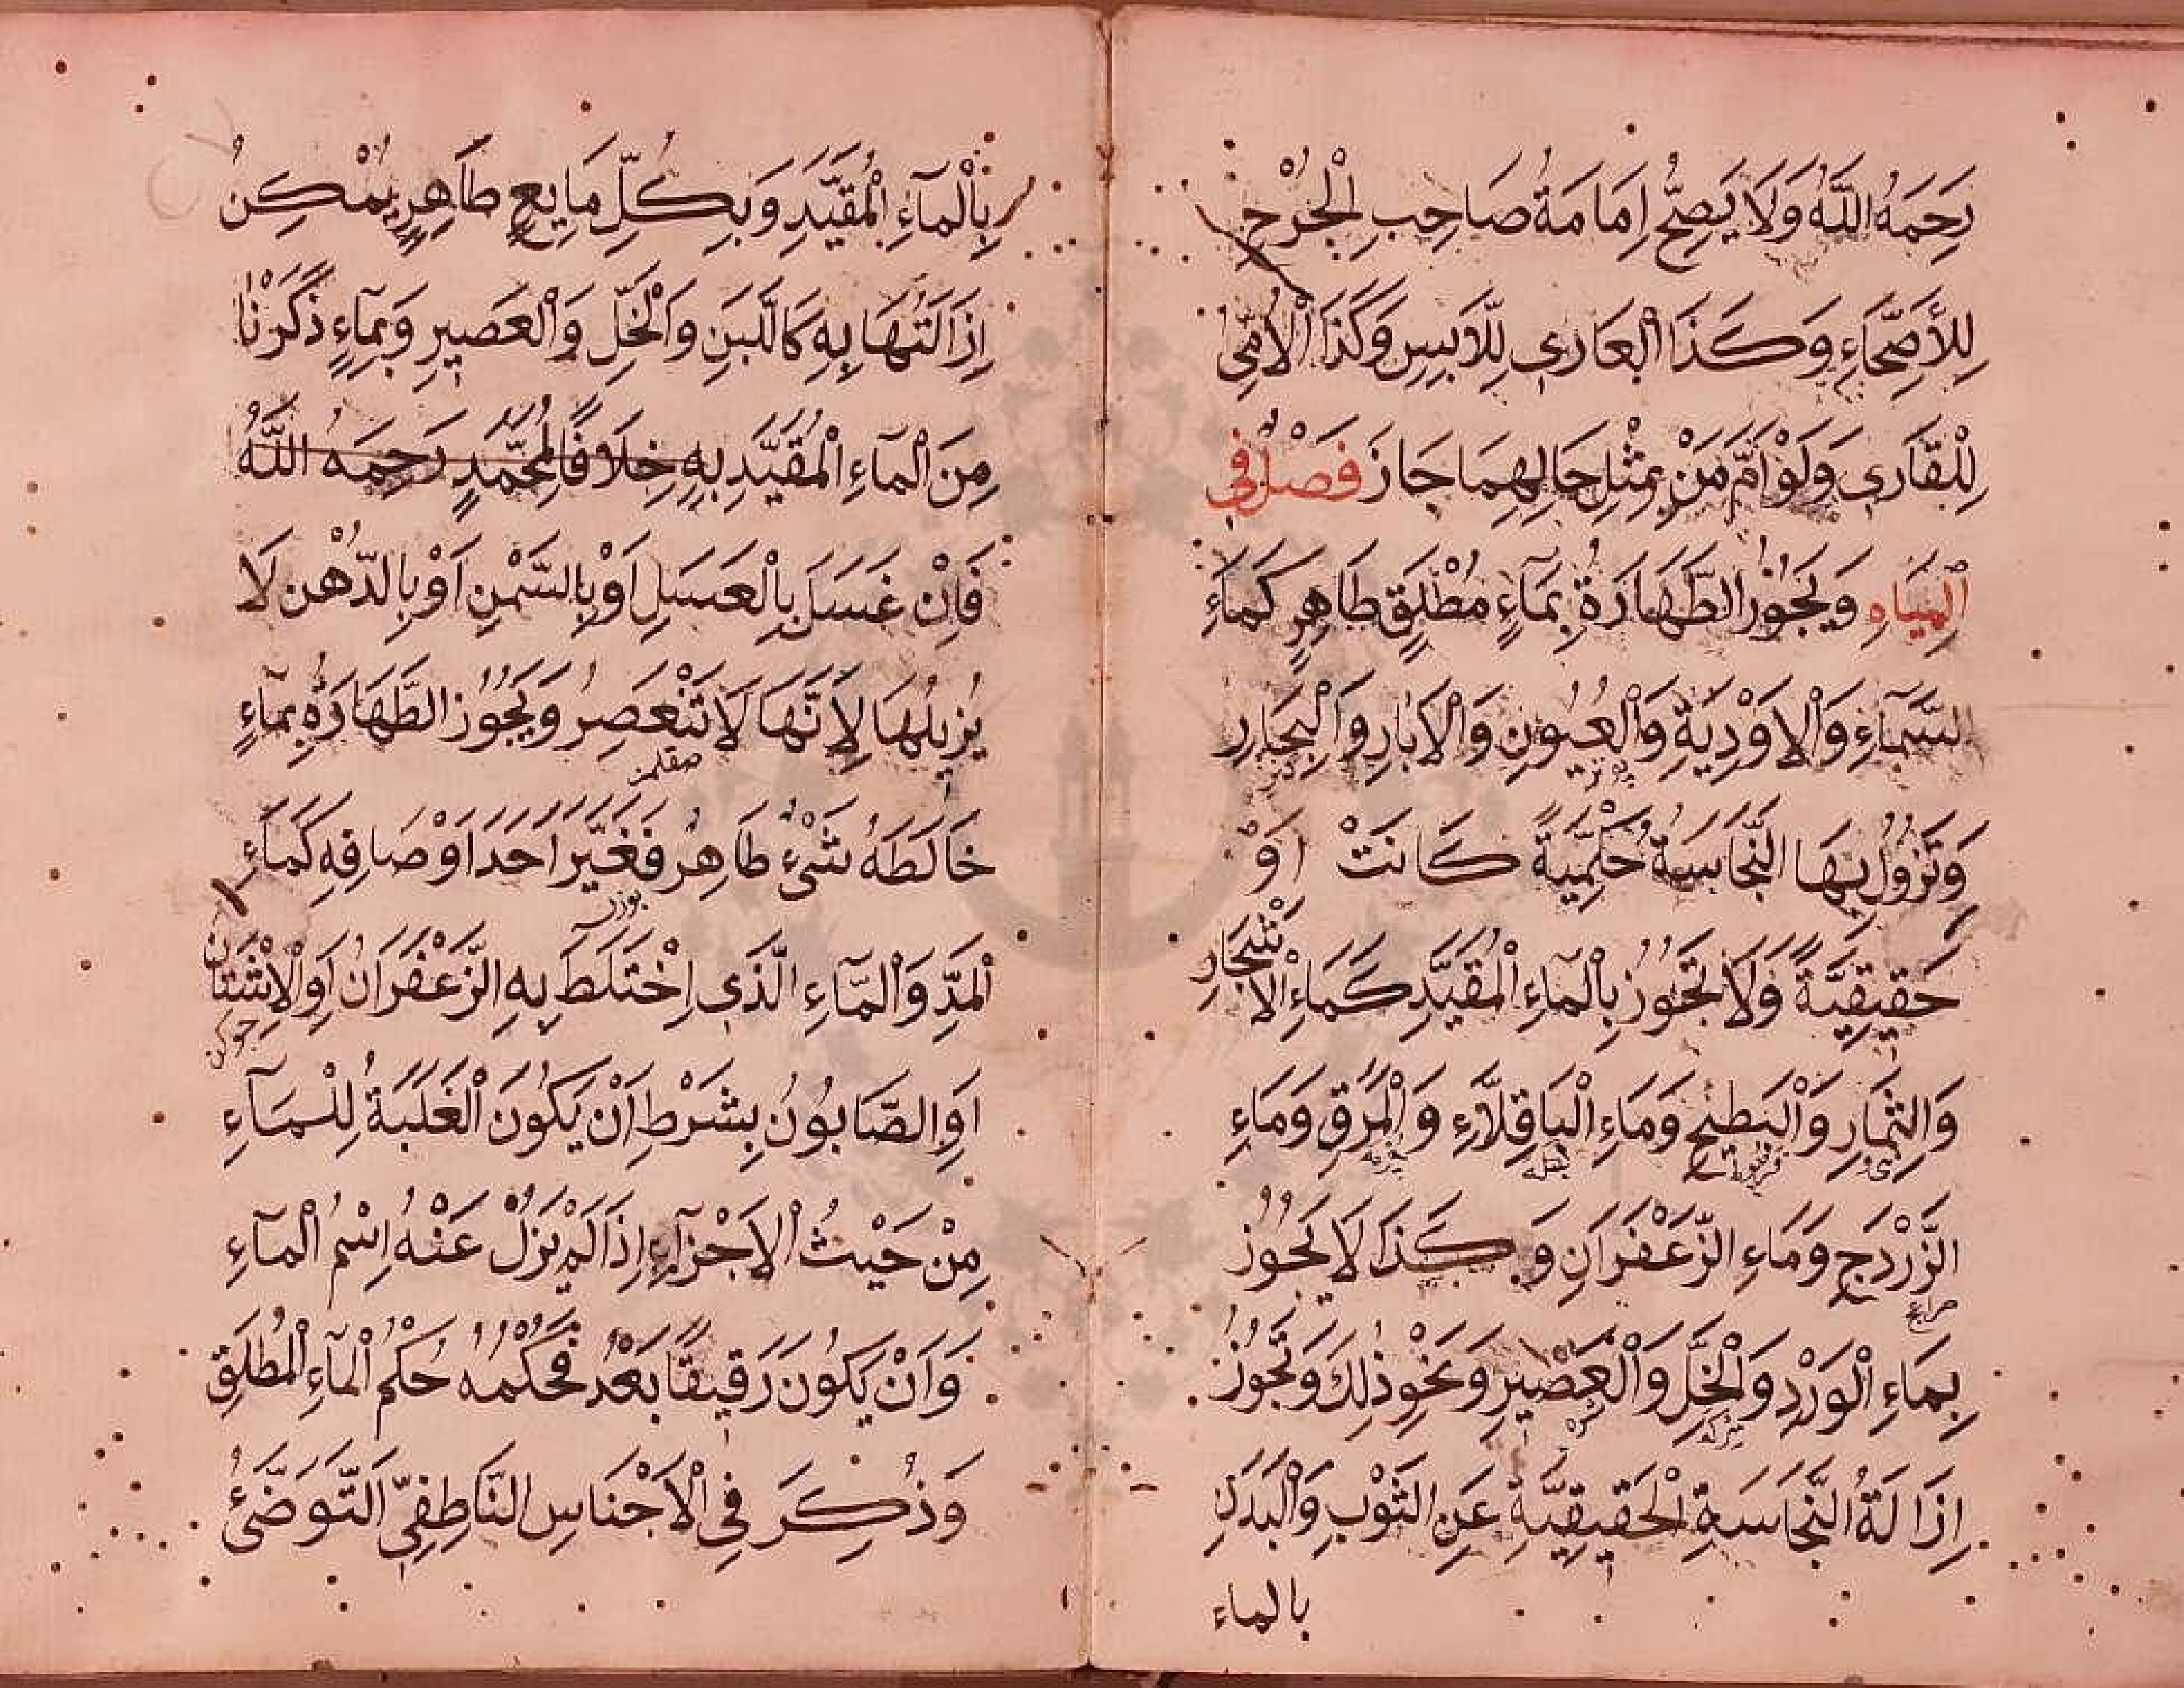 رَحِمَهُ اللّٰهُ وَلَا يَصِحُّ اِمَامَةُ صَاحِبِ الْجُرْحِ
لِلْأَصِحَّاءِ وَكَذَا الْعَارِي لِلَّابِسِ وَكَذَا الْاُمِّي
لِلْقَارِي وَلَوْ اَمَّ مَنْ بِمِثْلِ حَالِهِمَا جَازَ فَصْلٌ فِي
الْمِيَاهِ وَيَجُوزُ الطَّهَارَةُ بِمَآءٍ مُطْلَقٍ طَاهِرٍ كَمَاءِ
السَّمَآءِ وَالْاَوْدِيَةِ وَالْعُيُونِ وَالْاٰبَارِ وَالْبِحَارِ
وَتَزُولُ بِهَا النَّجَاسَةُ حُكْمِيَّةً كَانَتْ اَوْ
حَقِيقِيَّةً وَلَا تَجُوزُ بِالْمَآءِ الْمُقَيَّدِ كَمَاءِ الْاَشْجَارِ
وَالثِّمَارِ وَالْبَطِّيخِ وَمَاءِ الْبَاقِلَّاءِ وَالْمَرَقِ وَمَاءِ
الزَّرْدَجِ وَمَاءِ الزَّعْفَرَانِ وَكَذَا لَا يَجُوزُ
بِمَاءِ الْوَرْدِ وَالْخَلِّ وَالْعَصِيرِ وَنَحْوِ ذٰلِكَ وَتَجُوزُ
اِزَالَةُ النَّجَاسَةِ الْحَقِيقِيَّةِ عَنِ الثَّوْبِ وَالْبَدَنِ
بالماء
بِالْمَآءِ الْمُقَيَّدِ وَبِكُلِّ مَايِعٍ طَاهِرٍ يُمْكِنُ
اِزَالَتُهَا بِهِ كَاللَّبَنِ وَالْخَلِّ وَالْعَصِيرِ وَبِمَآءٍ ذَكَرْنَا
مِنَ الْمَاءِ الْمُقَيَّدِ بِهِ خِلَافًا لِمُحَمَّدٍ رَحِمَهُ اللّٰهُ
فَاِنْ غَسَلَ بِالْعَسَلِ اَوْ بِالسَّمْنِ اَوْ بِالدُّهْنِ لَا
يُزِيلُهَا لِاَنَّهَا لَا تَنْعَصِرُ وَيَجُوزُ الطَّهَارَةُ بِمَآءٍ
خَالَطَهُ شَىْءٌ طَاهِرٌ فَغَيَّرَ اَحَدَ اَوْصَافِهِ كَمَاءِ
الْمَدِّ وَالْمَآءِ الَّذِي اِخْتَلَطَ بِهِ الزَّعْفَرَانُ اَوِ الْاِشْنَانُ
اَوِ الصَّابُونُ بِشَرْطِ اَنْ يَكُونَ الْغَلَبَةُ لِلْمَآءِ
مِنْ حَيْثُ الْاَجْزَآءِ اِذَا لَمْ يَزُلْ عَنْهُ اِسْمُ الْمَآءِ
وَاَنْ يَكُونَ رَقِيقًا بَعْدُ فَحُكْمُهُ حُكْمُ الْمَآءِ الْمُطْلَقِ
وَذُكِرَ فِي الْاَجْنَاسِ النَّاطِفِيِّ اَلتَّوَضُّئُ